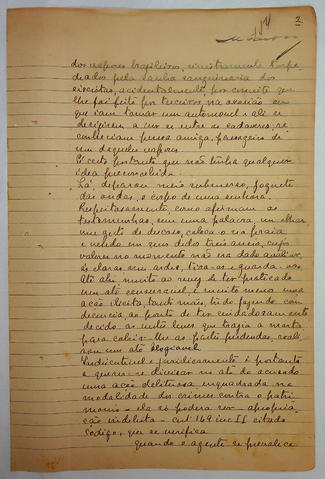 2
dos vapores brasileiros, sinistramente torpe-
deados pela sanha sanguinaria dos
eixistas, acidentalmente, por convite que
lhe foi feito por terceiros, na ocasião em
que iam tomar um automovel e ali se
dirigirem a ver se entre os cadaveres, re-
conheciam pessoa amiga, passageira de
um daqueles vapores
É certo portanto que não tinha qualquer
idéa preconcebida
Lá, deparou meio submerso, joguete
das ondas, o corpo de uma senhora.
Respeitosamente, como afirmam as
testemunhas, sem uma palavra, um olhar
um gesto de descaso, coloca-o na praia
e vendo em seus dedos tres aneis, cujos
valores no momento não era dado avaliar,
ás claras, sem ardis, tira-os e guarda-os.
Até ahi muito ao envez de ter praticado
um ato censuravel e muito menos uma
ação ilicita, tanto mais, tio do fazendo com
decencia, ao ponto de ter cuidadosamente
decido as vestes leves que trazia a morta
para cobrir-lhe as partes pudendas, reali-
sou um ato elogiavel
Indiscutivel e juridicamente é portanto
a querer-se divisar no ato do acusado
uma ação delituosa enquadrada na
modalidade dos crimes contra o patri-
monio - ela só poderá ser - apropria-
ção indebita - art 169 inc II citado
Codigo, que se verifica
quando o agente se prevalece